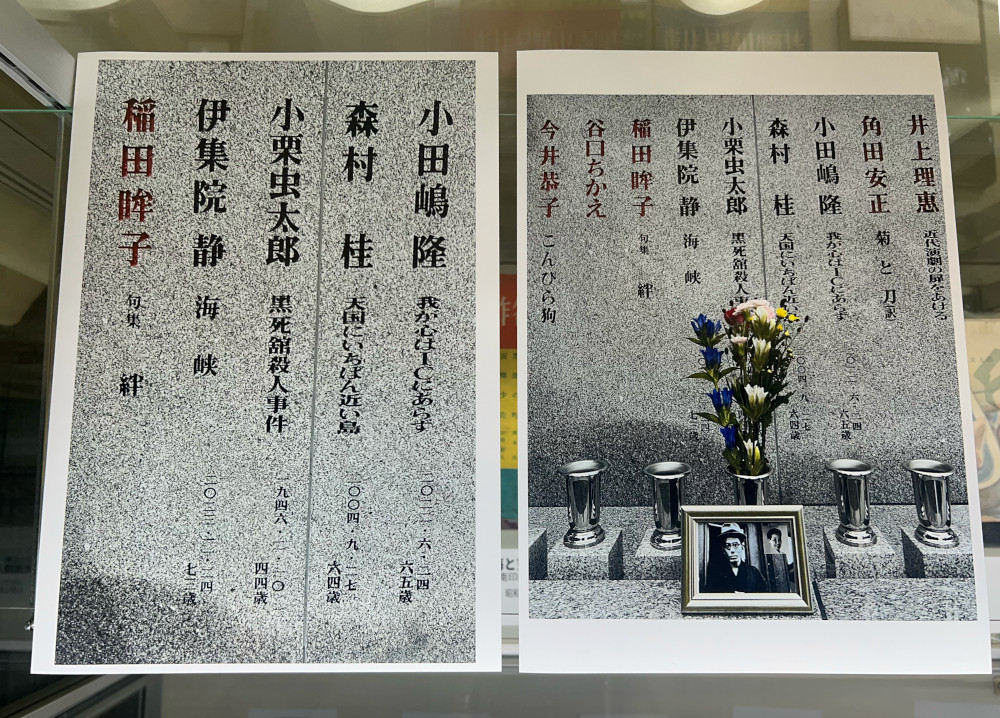 小田嶋 隆 我が心はICにあらず 二〇二二・六・二四 六五歳
森村 桂 天国にいちばん近い島 二〇〇四・九・二七 六四歳
小栗虫太郎 黒死舘殺人事件 一九四六・二・一〇 四四歳
伊集院 静 海峡 二〇二三・一一・二四 七三歳
稲田眸子 句集 絆
井上理恵 近代演劇の扉をあける
角田安正 菊と刀 訳
小田嶋 隆 我が心はICにあらず 二〇二二・六・二四 六五歳
森村 桂 天国にいちばん近い
小栗虫太郎 黒死舘殺人事
伊集院 静 海峡
稲田眸子 句集 絆
谷口ちかえ
今井恭子 こんぴら狗